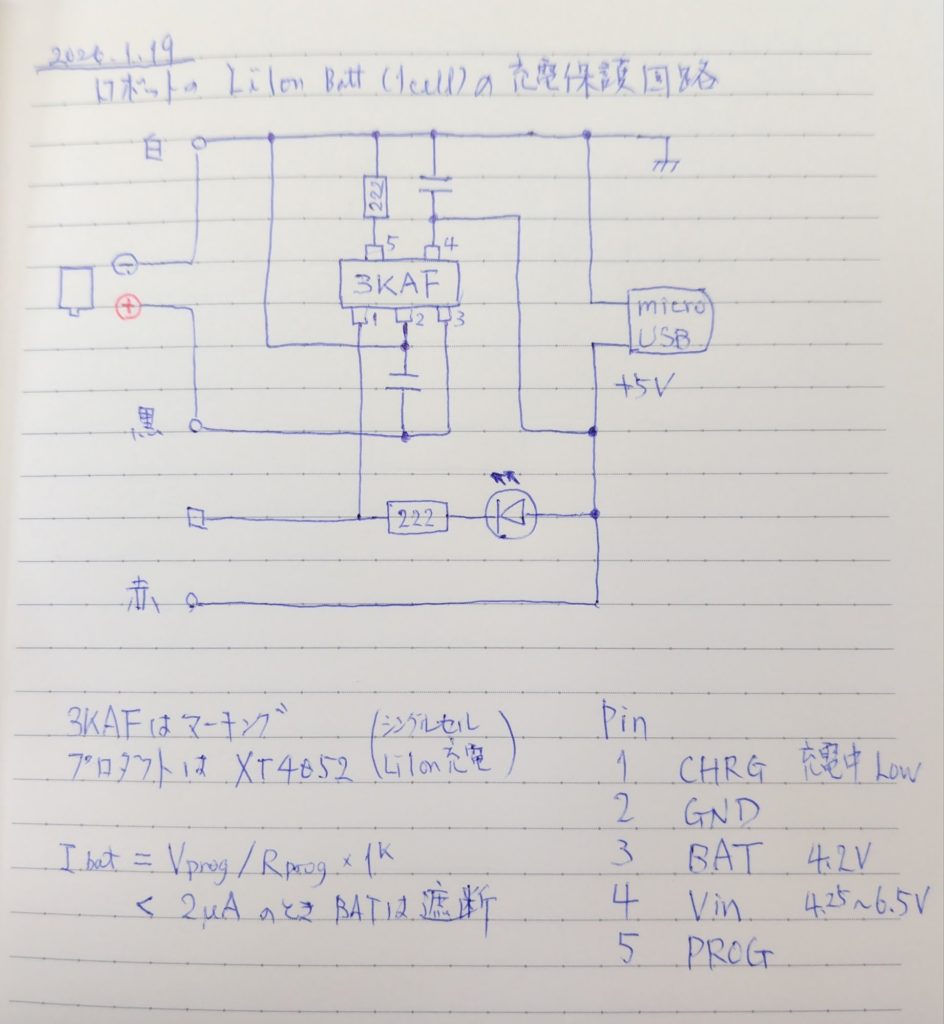 2020.1.19
ロボットの LiIon Batt (1cell)の充電保護回路
白
222
5
4
⊖
3KAF
⊕
1
2
3
micro
USB
+5V
黒
222
赤
3KAFはマーキング
プロダクトは XT4052
(シングルセル
LiIon充電)
Ibat = Vprog/Rprog × 1K
< 2μA のとき BATは遮断
Pin
1 CHRG 充電中 Low
2 GND
3 BAT 4.2V
4 Vin 4.25~6.5V
5 PROG